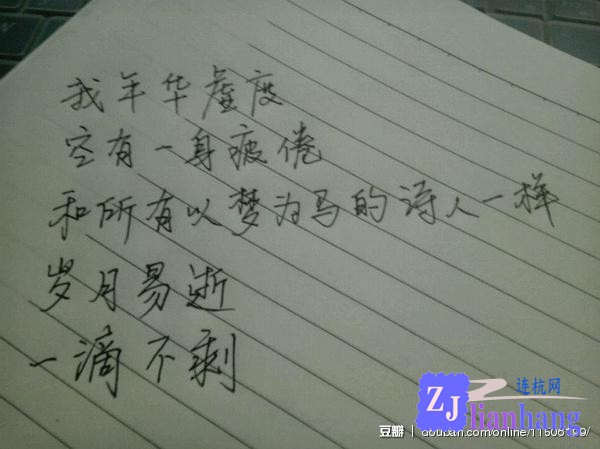 我年华虚度
空有一身疲倦
和所有以梦为马的诗人一样
岁月易逝
一滴不剩
连杭网
ZJ lianhang
豆瓣 douban.com/online/11506